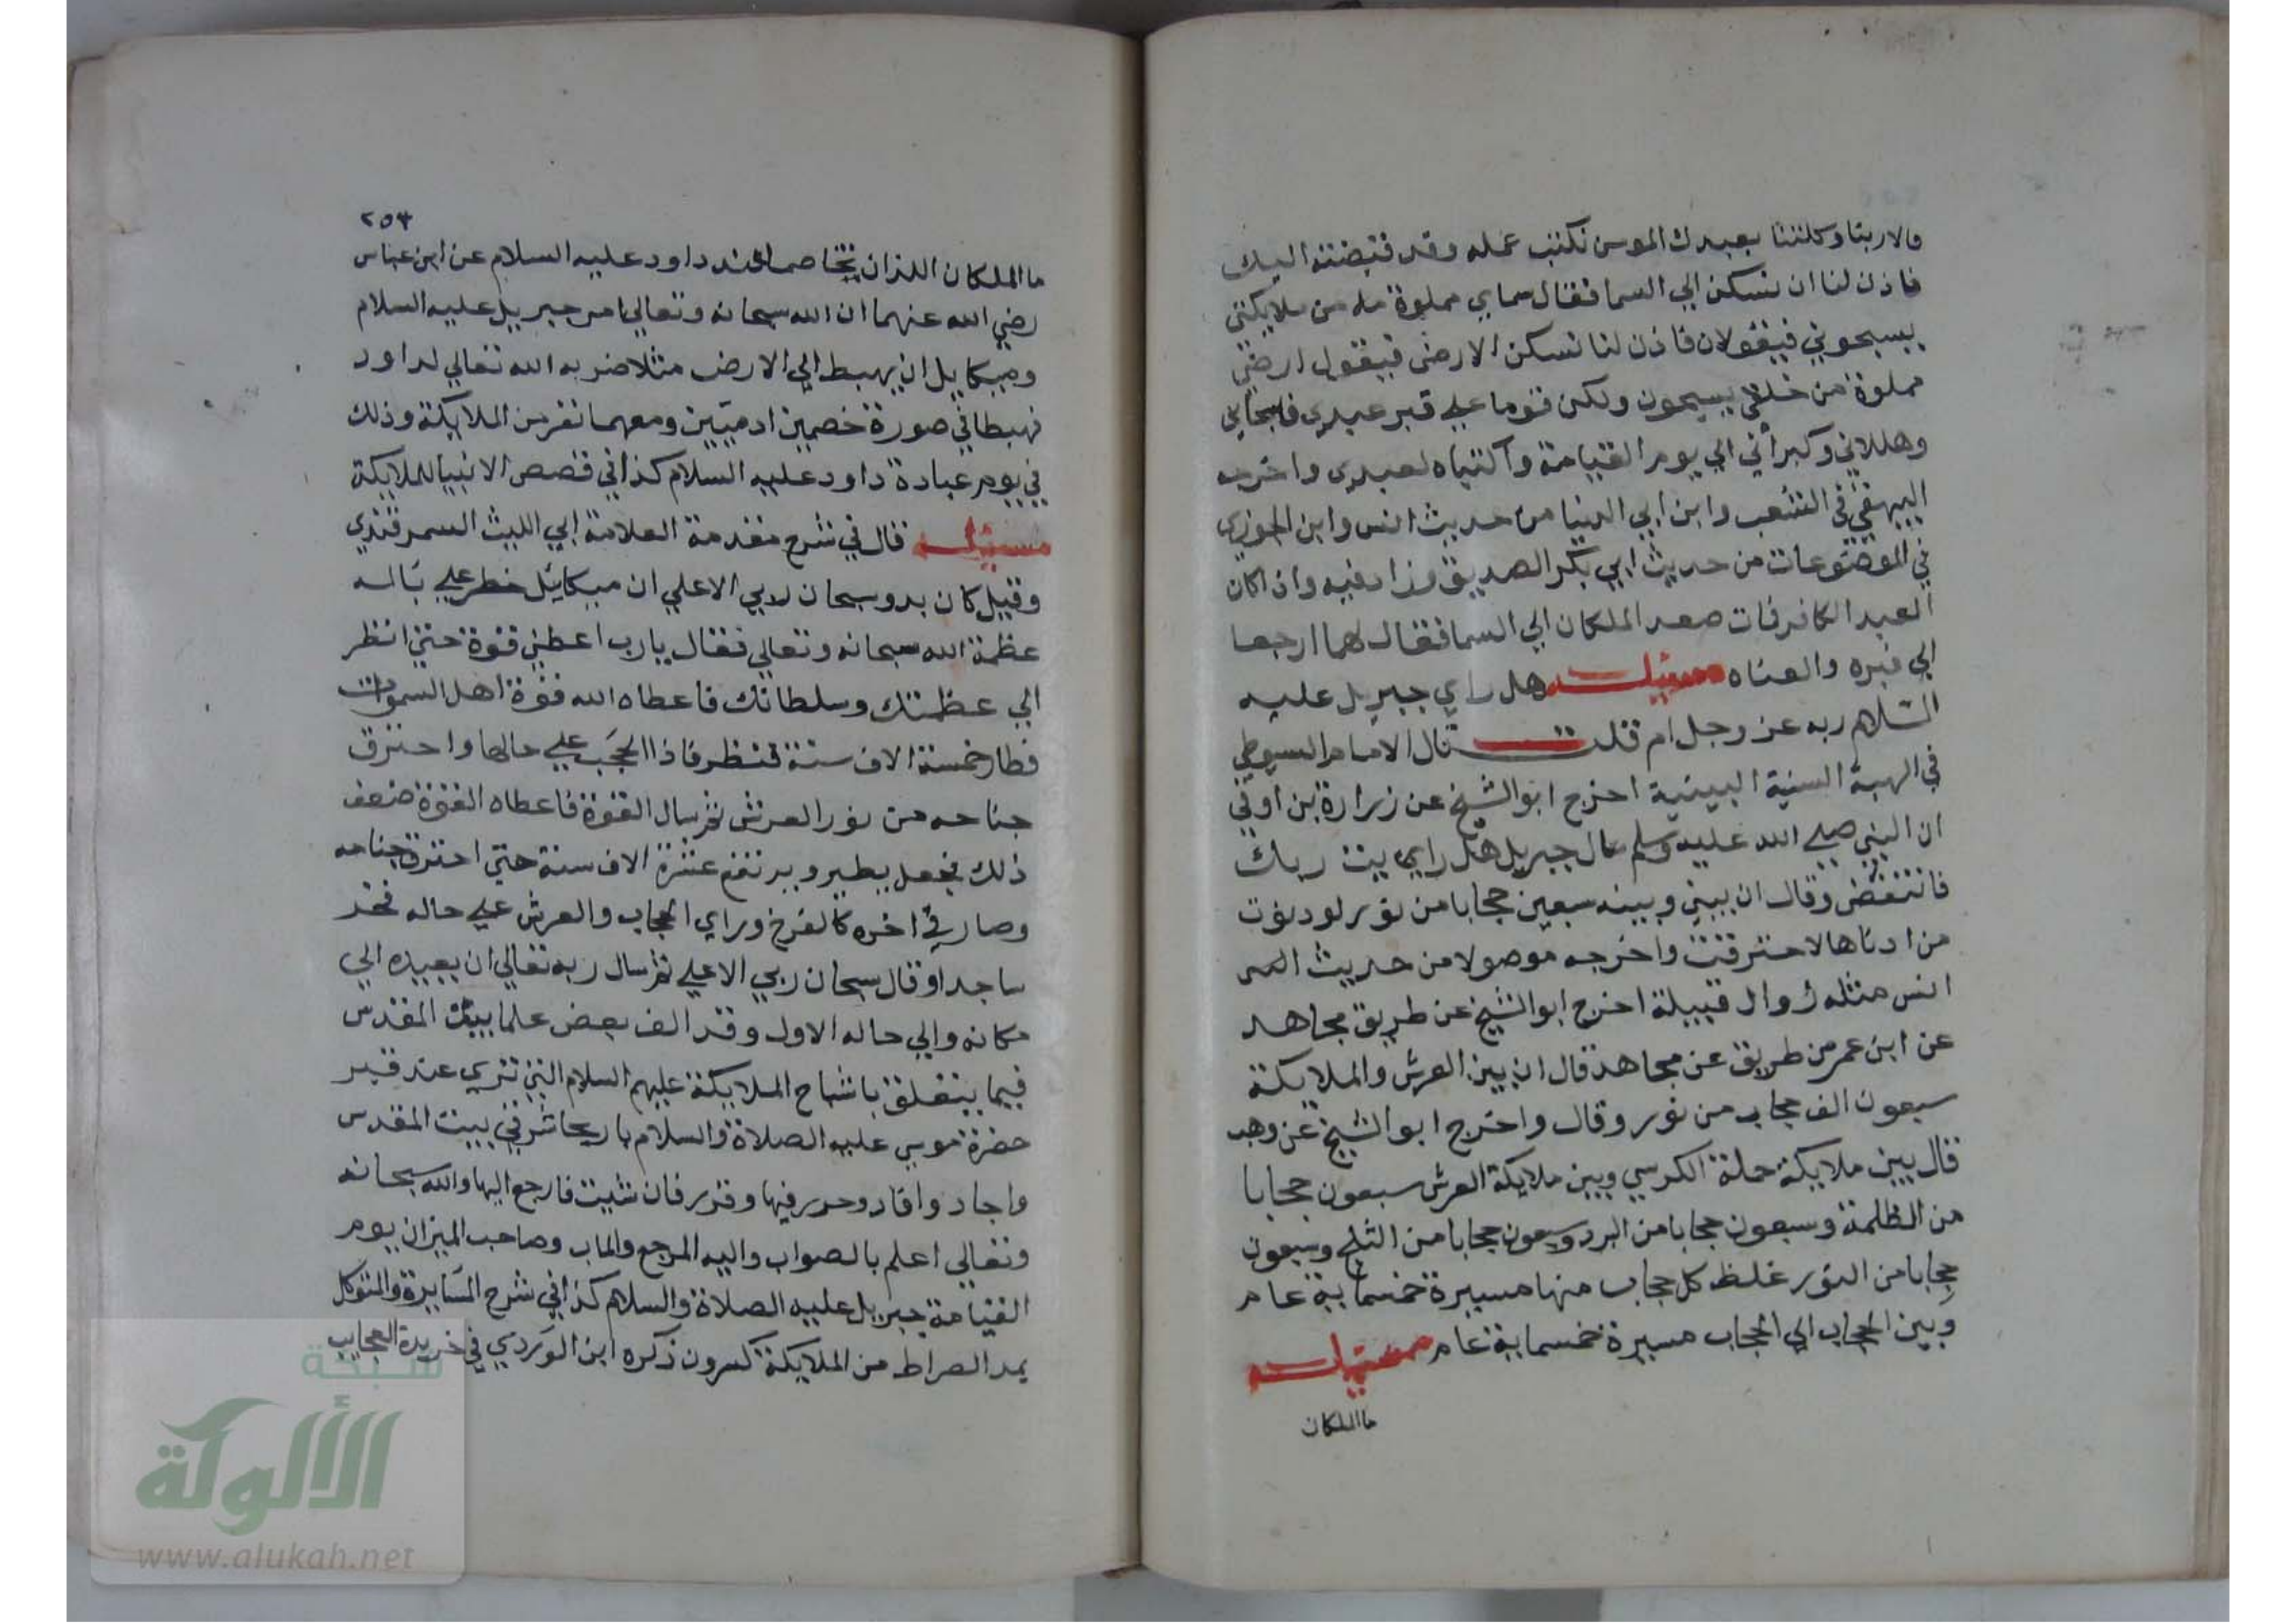 قالا ربنا وكلتنا بعبدك المومن نكتب عمله وقد قبضته اليك
فاذن لنا ان نسكن الي السما فقال سماي مملوة من ملايكتي
يسبحوني فيقولان فاذن لنا نسكن الارض فيقول ارضي
مملوة من خلقي يسبحون ولكن قوما علي قبر عبدي فسبحاني
وهللاني وكبراني الي يوم القيامة واكتباه لعبدي واخرجه
البيهقي في الشعب وابن ابي الدنيا من حديث انس وابن الجوزي
في الموضوعات من حديث ابي بكر الصديق وزاد فيه واذا كان
العبد الكافر فمات صعد الملكان الي السما فقال لهما ارجعا
الي قبره والعناه مسئلة هل راي جبريل عليه
السلام ربه عز وجل ام قلت قال الامام السيوطي
في الهبة السنية البينية اخرج ابو الشيخ عن زرارة بن اوفي
ان النبي صلي الله عليه وسلم سال جبريل هل رايت ربك
فانتفض وقال ان بيني وبينه سبعين حجابا من نور لو دنوت
من ادناها لاحترقت واخرجه موصولا من حديث
انس مثله اخرج ابو الشيخ عن طريق مجاهد
عن ابن عمر من طريق عن مجاهد قال ان بين العرش والملايكة
سبعون الف حجاب من نور وقال واخرج ابو الشيخ عن وهب
قال بين ملايكة حملة الكرسي وبين ملايكة العرش سبعون حجابا
من الظلمة وسبعون حجابا من البرد وسبعون حجابا من الثلج وسبعون
حجابا من النور غلظ كل حجاب منها مسيرة خمسماية عام
وبين الحجاب الي الحجاب مسيرة خمسماية عام مسئلة
ما الملكان
٢٥٣
ما الملكان اللذان تخاصما عند داود عليه السلام عن ابن عباس
رضي الله عنهما ان الله سبحانه وتعالي امر جبريل عليه السلام
وميكايل ان يهبط الي الارض مثلا ضربه الله تعالي لداود
فهبطا في صورة خصمين ادميين ومعهما نفر من الملايكة وذلك
في يوم عبادة داود عليه السلام كذا في قصص الانبيا للملايكة
مسئلة قال في شرح مقدمة العلامة ابي الليث السمرقندي
وقيل كان بدو سبحان ربي الاعلي ان ميكائل خطر علي باله
عظمة الله سبحانه وتعالي فقال يارب اعطني قوة حتي انظر
الي عظمتك وسلطانك فاعطاه الله قوة اهل السموات
فطار خمسة الاف سنة فنظر فاذا الحجب علي حالها واحترق
جناحه من نور العرش ثم سال القوة فاعطاه القوة ضعف
ذلك فجعل يطير ويرتفع عشرة الاف سنة حتي احترق جناحه
وصار في اخره كالفرخ وراي الحجاب والعرش علي حاله فخر
ساجدا وقال سبحان ربي الاعلي ثم سال ربه تعالي ان يعيده الي
مكانه والي حاله الاول وقد الف بعض علما بيت المقدس
فيما يتعلق باشباح الملايكة عليهم السلام التي تري عند قبر
حضرة موسي عليه الصلاة والسلام باريحا شرقي بيت المقدس
واجاد وافاد وحرر فيها وقرر فان شيت فارجع اليها والله سبحانه
وتعالي اعلم بالصواب واليه المرجع والماب وصاحب الميزان يوم
القيامة جبريل عليه الصلاة والسلام كذا في شرح المسايرة والمتوكل
بمد الصراط من الملايكة كسرون ذكره ابن الوردي في خريدة العجايب
شبكة
الألوكة
www.alukah.net